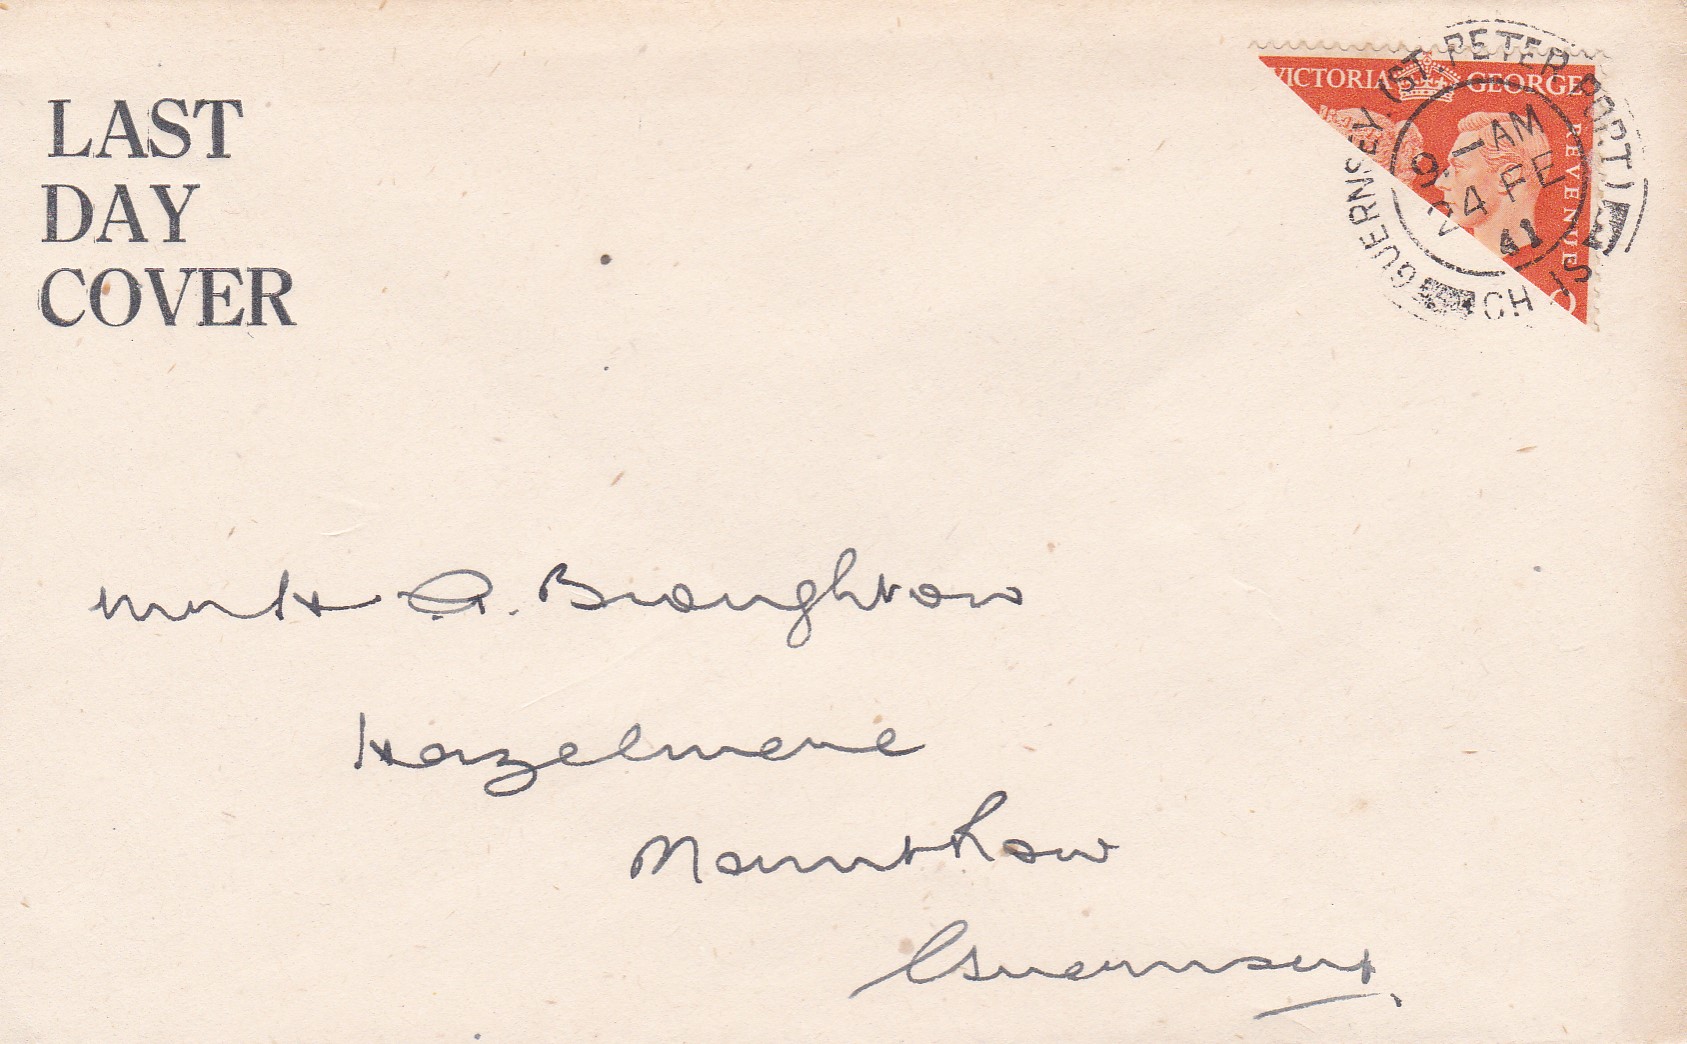 LAST
DAY
COVER
VICTORIA GEORGE
REVENUE
GUERNSEY. (ST PETER PORT)
CH IS
9. 1 AM
24 FE
41
A. Broughton
Hazelmere
Mount Row
Guernsey